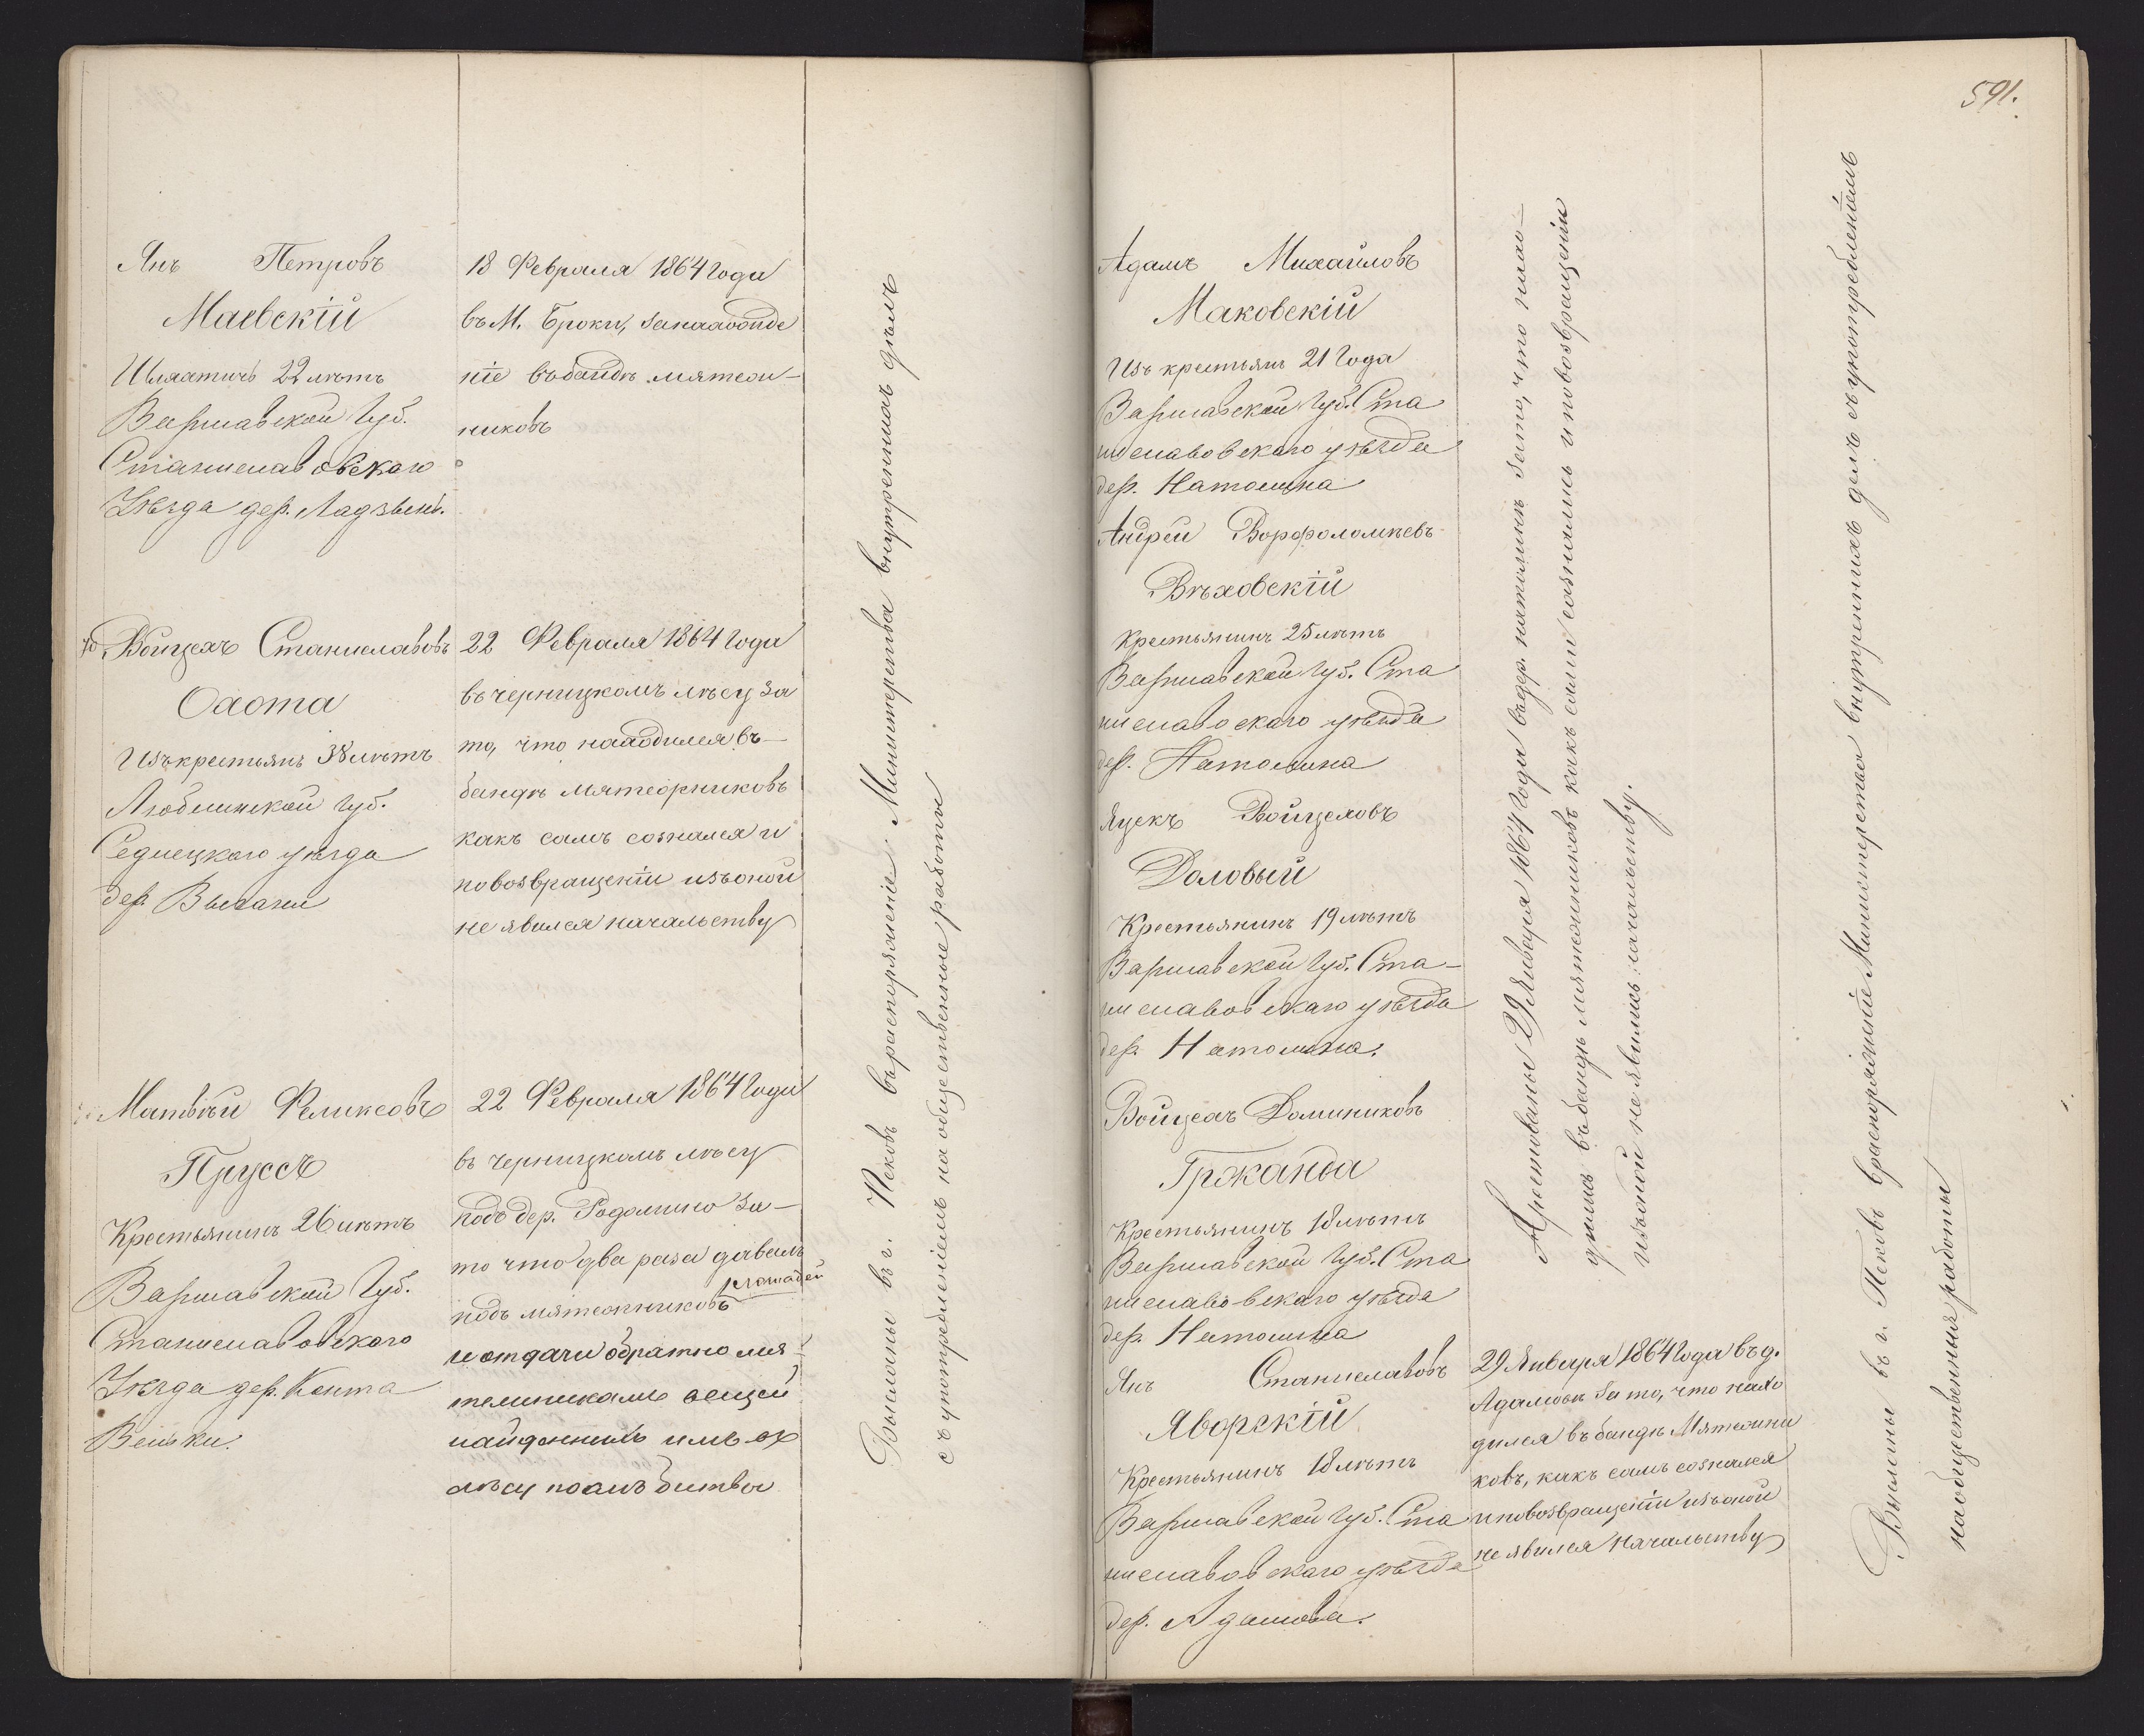 Янъ Петровъ
Маевскій
Шляхтичъ 22 лѣтъ
Варшавской Губ.
Станиславовскаго
Уѣзда дер. Ладзынь.
18 Февраля 1864 года
въ М. Броки, за нахожде
ніе въ бандѣ мятеж-
никовъ
Войцехъ Станиславовъ
Охота
Изъ крестьянъ 38 лѣтъ
Люблинской губ.
Седлецкаго уѣзда
дер.
22 Февраля 1864 года
въ черницкомъ лѣсу за
то, что находился въ
бандѣ мятежниковъ
какъ самъ сознался и
по возвращеніи изъ оной
не явился начальству
Матвѣй Феликсовъ
Пруссъ
Крестьянинъ 26 лѣтъ
Варшавской Губ.
Станиславовскаго
Уѣзда дер. Конта
22 Февраля 1864 года
въ черницкомъ лѣсу
подъ дер. за
то что два раза давалъ
лошадей
подъ мятежниковъ
и отдачи обратно мя-
тежникамъ вещей
найденныхъ имъ въ
лѣсу послѣ битвы
Высланы въ г. Псковъ въ распоряженіе Министерства внутреннихъ дѣлъ
съ употребленіемъ на общественные работы
591.
Адамъ Михайловъ
Маковскій
Изъ крестьянъ 21 года
Варшавской губ. Ста
ниславовскаго уѣзда
дер. Натолина
Андрей Ворфоломѣевъ
Вѣховскій
Крестьянинъ 25 лѣтъ
Варшавской губ. Ста
ниславоскаго уѣзда
дер. Натолина
Яцекъ Войцеховъ
Доловый
Крестьянинъ 19 лѣтъ
Варшавской губ. Ста-
ниславовскаго уѣзда
дер. Натолина.
Войцехъ Доминиковъ
Гржанда
Крестьянинъ 18 лѣтъ
Варшавской губ. Ста
ниславовскаго уѣзда
дер. Натолина
Арестованы 29 Января 1864 года въ дер. натолинѣ за то, что нахо-
дились въ бандѣ мятежниковъ какъ сами сознались и по возвращеніи
изъ оной не явились начальству.
Янъ Станиславовъ
Яворскій
Крестьянинъ 18 лѣтъ
Варшавской губ. Ста
ниславовскаго уѣзда
дер. Адамова.
29 Января 1864 года въ д.
Адамовѣ за то, что нахо
дился въ бандѣ Мятежни
ковъ, какъ самъ сознался
и по возвращеніи изъ оной
не явился начальству
Высланы въ г. Псковъ въ распоряженіе Министерства внутреннихъ дѣлъ съ употребленіемъ
на общественныя работы